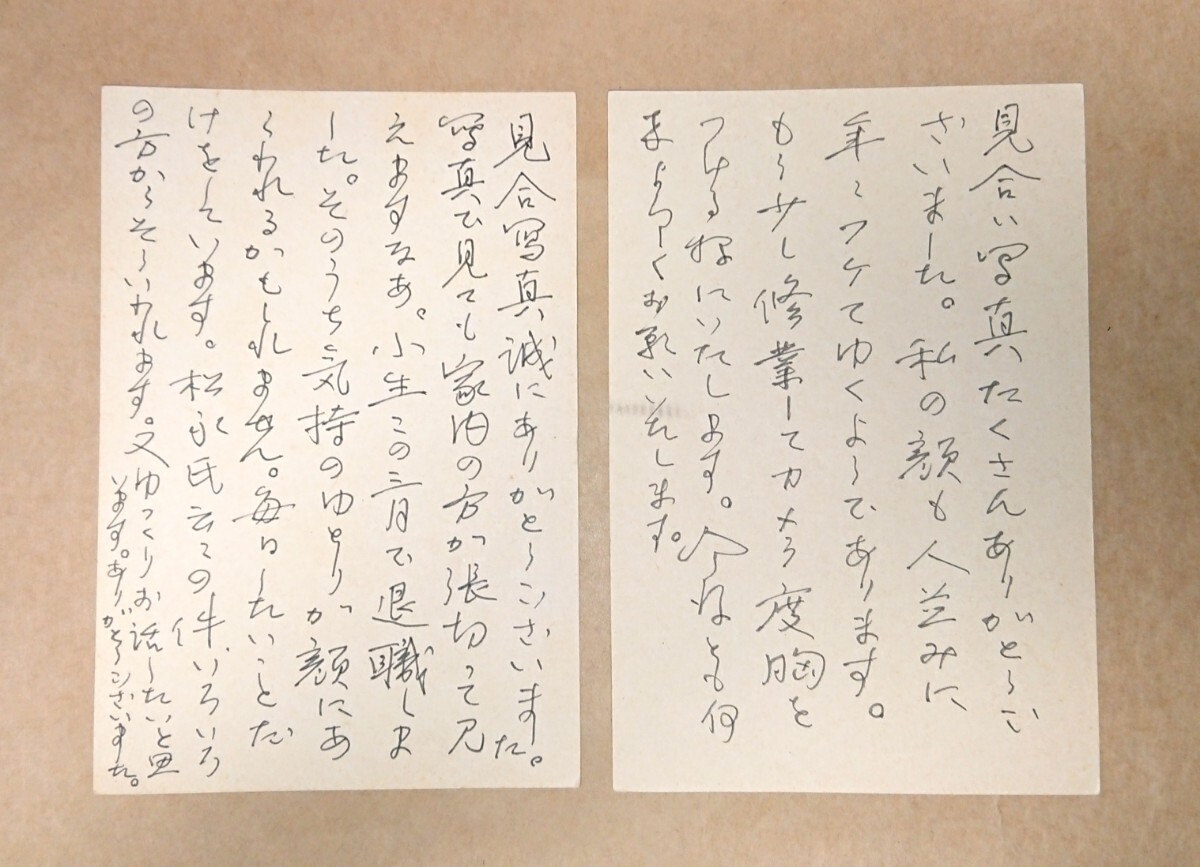 見合い写真たくさんありがとうご
ざいました。私の顔も人並みに
年々フケてゆくようであります。
もう少し修業してカメラ度胸を
つける様にいたします。今後とも何
まよろしくお願いいたします。
見合写真誠にありがとうございました。
写真で見ても家内の方が張切って見
えますなあ。小生この三月で退職しま
した。そのうち気持のゆとりが顔にあ
らわれるかもしれません。毎日したいことだ
けをしています。松永氏云々の件、いろいろ
の方からそういわれます。又ゆっくりお話したいと思
います。ありがとうございました。